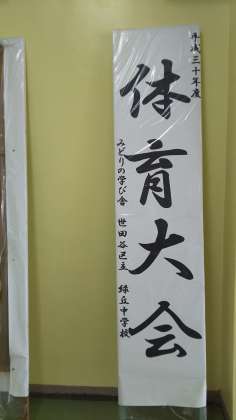 平成三十年度
体育大会
みどりの学び舎 世田谷区立 緑丘中学校